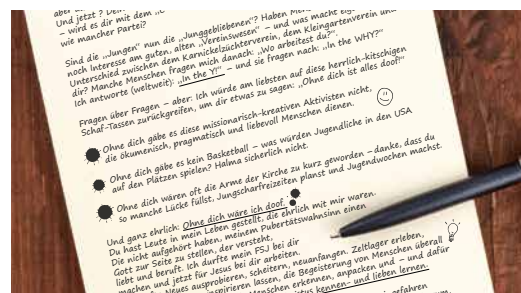 Und jetzt ?
– wird es dir mit dem
wie mancher Partei?
Sind die „Jungen" nun die „Junggebliebenen"? Haben
noch Interesse am guten, alten „Vereinswesen" – und was macht
Unterschied zwischen dem Karnickelzüchterverein, dem Kleingartenverein und
dir? Manche Menschen fragen mich danach: „Wo arbeitest du?".
Ich antworte (weltweit): „In the Y!" – und sie fragen nach: „In the WHY?"
Fragen über Fragen – aber: Ich würde am liebsten auf diese herrlich-kitschigen
Schaf-Tassen zurückgreifen, um dir etwas zu sagen: „Ohne dich ist alles doof!"
Ohne dich gäbe es diese missionarisch-kreativen Aktivisten nicht,
die ökumenisch, pragmatisch und liebevoll Menschen dienen.
Ohne dich gäbe es kein Basketball – was würden Jugendliche in den USA
auf den Plätzen spielen? Halma sicherlich nicht.
Ohne dich wären oft die Arme der Kirche zu kurz geworden – danke, dass du
so manche Lücke füllst, Jungscharfreizeiten planst und Jugendwochen machst.
Und ganz ehrlich: Ohne dich wäre ich doof.
Du hast Leute in mein Leben gestellt, die ehrlich mit mir waren.
Die nicht aufgehört haben, meinem Pubertätswahnsinn einen
Gott zur Seite zu stellen, der versteht,
liebt und beruft. Ich durfte mein FSJ bei dir
machen und jetzt für Jesus bei dir arbeiten.
Neues ausprobieren, scheitern, neuanfangen. Zeltlager erleben,
inspirieren lassen, die Begeisterung von Menschen überall
Menschen erkennen, anpacken und – und dafür
kennen- und lieben lernen.
erfahren